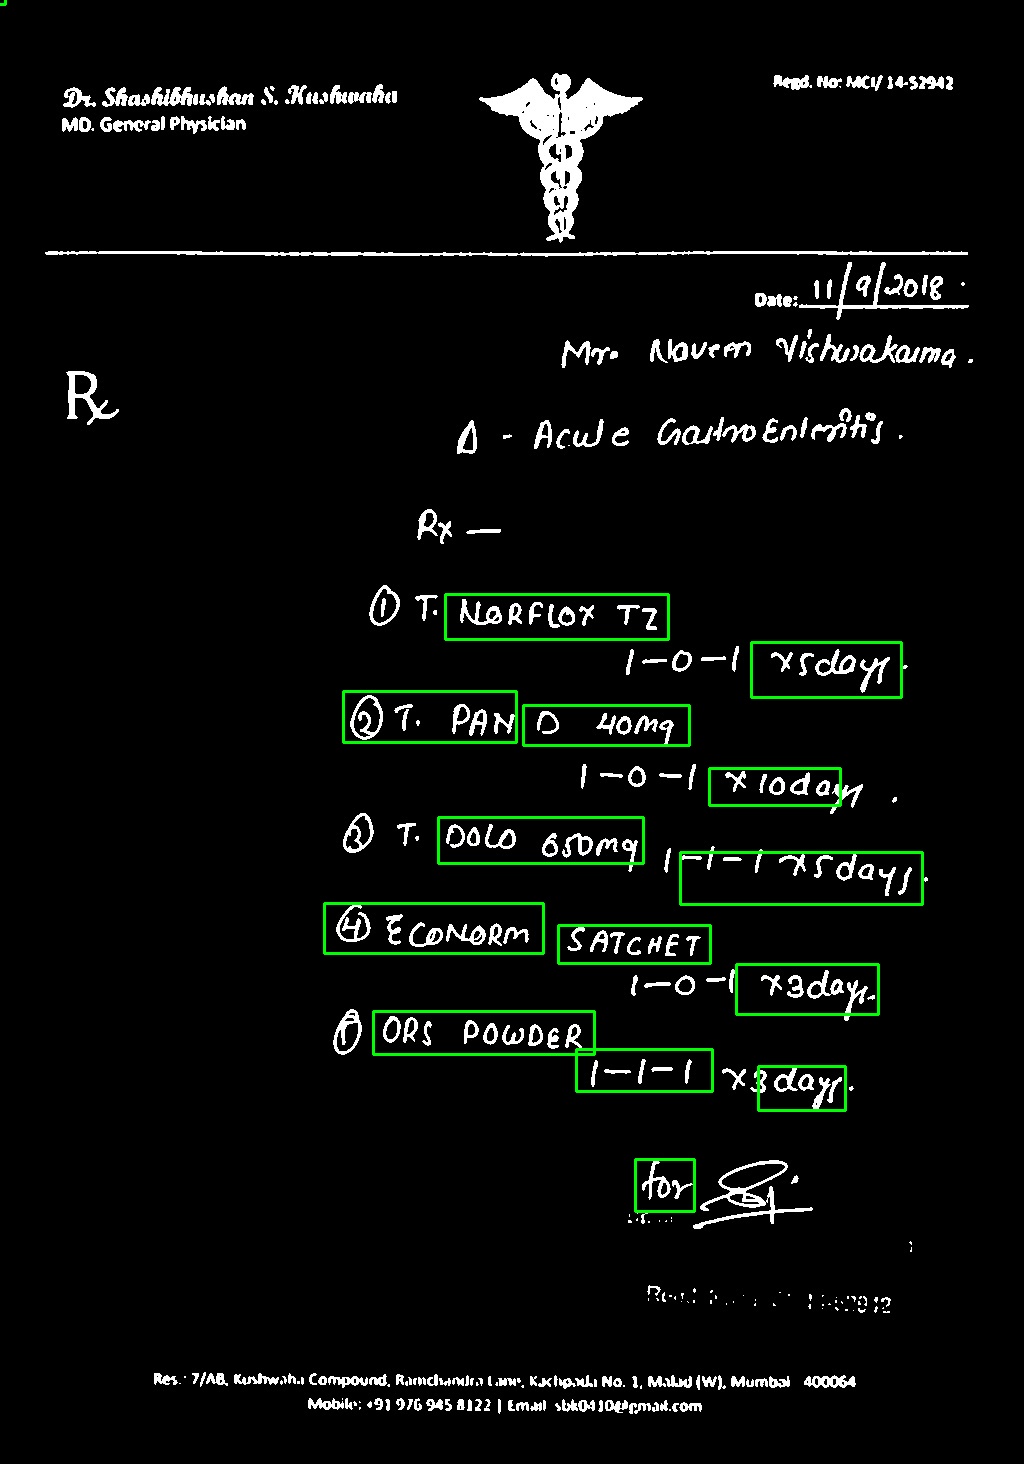 Dr. Shashibhushan S. Kushwaha
MD. General Physician
Regd. No: MCI/ 14-52942
Date: 11/9/2018.
Mr. Naveen Vishwakarma.
Rx
Δ - Acute GastroEnteritis.
Rx —
① T. NORFLOX TZ
1-0-1 x5days.
② T. PAN D 40mg
1-0-1 x10days.
③ T. DOLO 650mg 1-1-1 x5days.
④ ECONORM SATCHET
1-0-1 x3days.
ORS POWDER
1-1-1 x3days.
for
Res.: 7/AB, Kushwaha Compound, Ramchandra Lane, Kachpada No. 1, Malad (W), Mumbai 400064
Mobile: +91 976 945 8122 | Email sbk0410@gmail.com